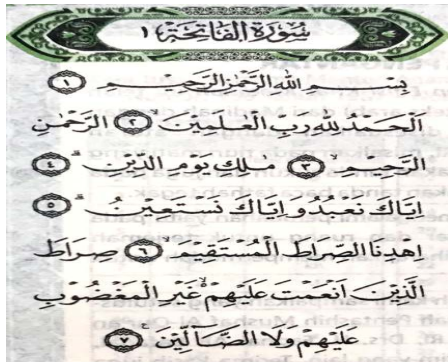 سُورَةُ الْفَاتِحَةِ ١
بِسْمِ اللّٰهِ الرَّحْمٰنِ الرَّحِيْمِ ﴿١﴾
اَلْحَمْدُ لِلّٰهِ رَبِّ الْعٰلَمِيْنَۙ ﴿٢﴾ الرَّحْمٰنِ
الرَّحِيْمِۙ ﴿٣﴾ مٰلِكِ يَوْمِ الدِّيْنِۗ ﴿٤﴾
اِيَّاكَ نَعْبُدُ وَاِيَّاكَ نَسْتَعِيْنُۗ ﴿٥﴾
اِهْدِنَا الصِّرَاطَ الْمُسْتَقِيْمَۙ ﴿٦﴾ صِرَاطَ
الَّذِيْنَ اَنْعَمْتَ عَلَيْهِمْۙ غَيْرِ الْمَغْضُوْبِ
عَلَيْهِمْ وَلَا الضَّاۤلِّيْنَۚ ﴿٧﴾